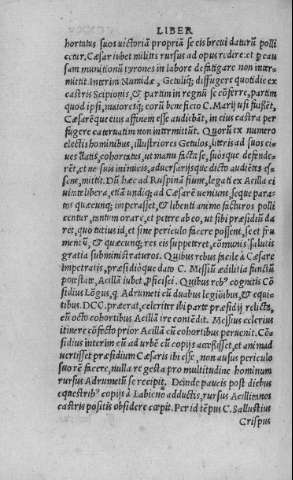 LIBER
hortatus suos victoriā propriā se eis brevi daturū polli
cetur. Cæsar iubet milites rursus ad opus redire: et pau
sam munitionū tyrones in labore defatigare non inter
mittit. Interim Numidæ, Getuliq; diffugere quotidie ex
castris Scipionis, & partim in regnū se cōferre, partim
quod ipsi, maioresq; eorū beneficio C. Marij usi fuissēt,
Cæsarēque eius affinem esse audiebāt, in eius castra per
fugere catervatim non intermittūt. Quorū ex numero
electis hominibus, illustriores Getulos, literis ad suos ci
ves datis, cohortatus, ut manu facta se, suosque defende
rēt, et ne suis inimicis, adversarijsque dicto audiētes es
sent, mittit. Dū hæc ad Ruspinā fiunt, legati ex Acilla ci
vitate libera, etiā undiq; ad Cæsarē veniunt, seque para
tos quæcunq; imperasset, & libenti animo facturos polli
centur, tantum orare, et petere ab eo, ut sibi præsidiū da
ret, quo tutius id, et sine periculo facere possent, se et fru
mentū, & quæcunq; res eis suppetret, cōmunis salutis
gratia subministraturos. Quibus rebus facile à Cæsare
impetratis, præsidióque dato C. Messiū ædilitia functū
potestate, Acillā iubet, pficisci. Quibus reb⁹ cognitis Cō
sidius Lōgus, q Adrumeti cū duabus legiōibus, & equi-
tibus DCC. præerat, celeriter ibi parte præsidij relicta,
cū octo cohortibus Acillā ire contēdit. Messius celerius
itinere cōfecto prior Acillā cū cohortibus pervenit. Cō
sidius interim cū ad urbē cū copijs accessisset, et animad
vertisset præsidium Cæsaris ibi esse, non ausus periculo
suo rē facere, nulla re gesta pro multitudine hominum
rursus Adrumetū se recipit. Deinde paucis post diebus
equestrib⁹ copijs à Labieno adductis, rursus Acillitanos
castris positis obsidere cœpit. Per id tēpus C. Sallustius
Crispus